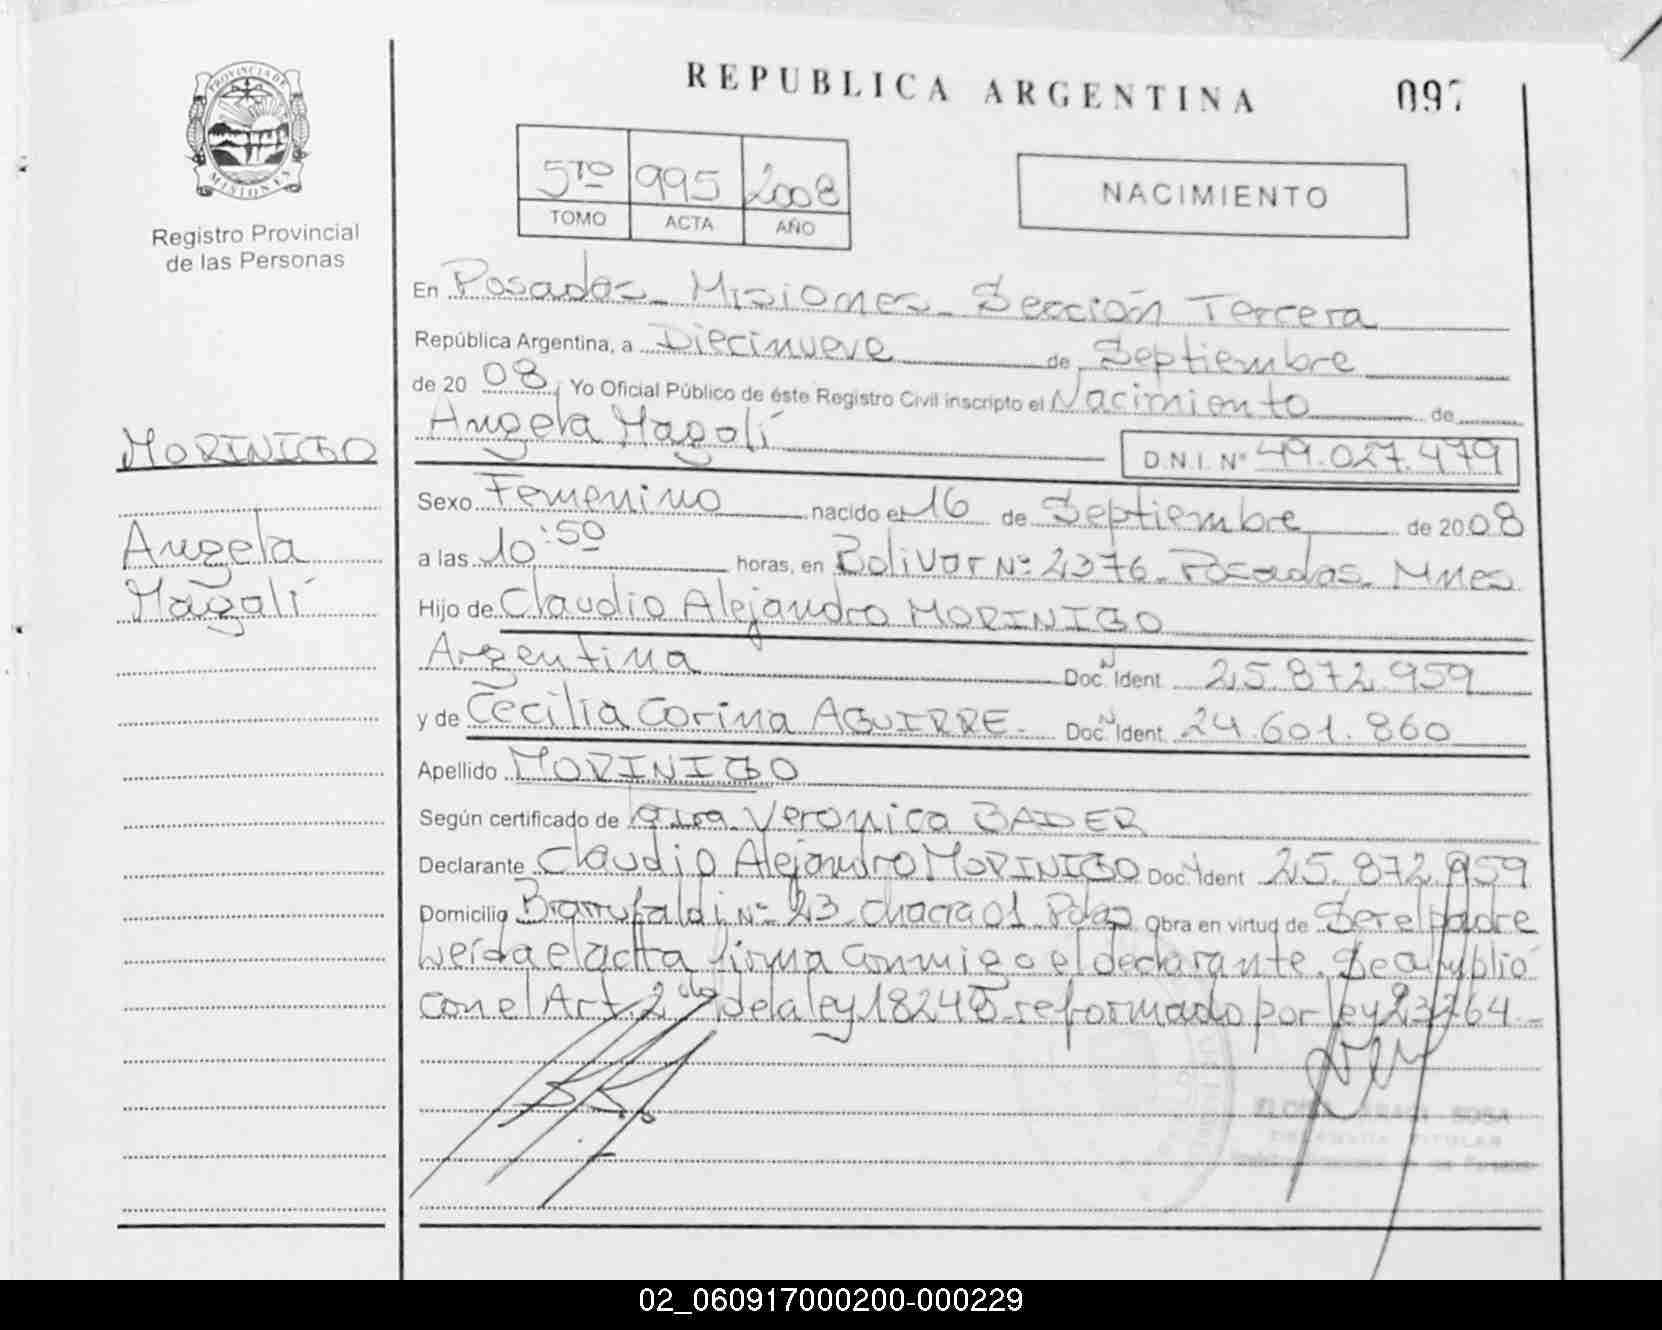 REPUBLICA ARGENTINA
097
PROVINCIA DE
MISIONES
Registro Provincial
de las Personas
5TO 995 2008
TOMO ACTA AÑO
NACIMIENTO
En Posadas - Misiones - Sección Tercera
República Argentina, a Diecinueve de Septiembre
de 20 08 Yo Oficial Público de éste Registro Civil inscripto el Nacimiento de
Angela Magalí
D.N.I. Nº 49.027.479
MORINIGO
Angela
Magalí
Sexo Femenino nacido el 16 de Septiembre de 2008
a las 10:50 horas, en Bolivar Nº 2376 - Posadas - Mnes
Hijo de Claudio Alejandro MORINIGO
Argentina Doc. N Ident 25.872.959
y de Cecilia Corina AGUIRRE - Doc. N Ident. 24.601.860
Apellido MORINIGO
Según certificado de Veronica BADER
Declarante Claudio Alejandro MORINIGO Doc. N Ident 25.872.959
Domicilio Nº 23 - chacra 01 - Pdas Obra en virtud de Ser el padre
Leída el acta firma conmigo el declarante. Se cumplió
con el Art. 2do de la ley 18248 - reformado por ley 23264 -
SOSA
TITULAR
02_060917000200-000229